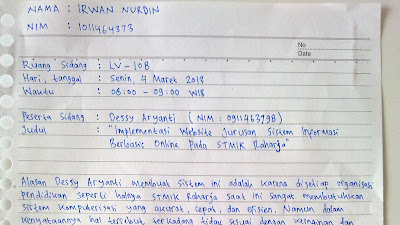 NAMA : IRWAN NURDIN
NIM : 1011464373
No
Date
Ruang Sidang : LV - 108
Hari, tanggal : Senin, 4 Maret 2013
Waktu : 08:00 - 09:00 WIB
Peserta Sidang : Dessy Aryanti ( NIM : 0911463798 )
Judul : "Implementasi Website Jurusan Sistem Informasi
Berbasis Online Pada STMIK Raharja"
Alasan Dessy Aryanti membuat sistem ini adalah karena disetiap organisasi
pendidikan seperti halnya STMIK Raharja saat ini sangat membutuhkan
sistem komputerisasi yang akurat, cepat, dan efisien. Namun dalam
kenyataannya hal tersebut terkadang tidak sesuai dengan keinginan dan